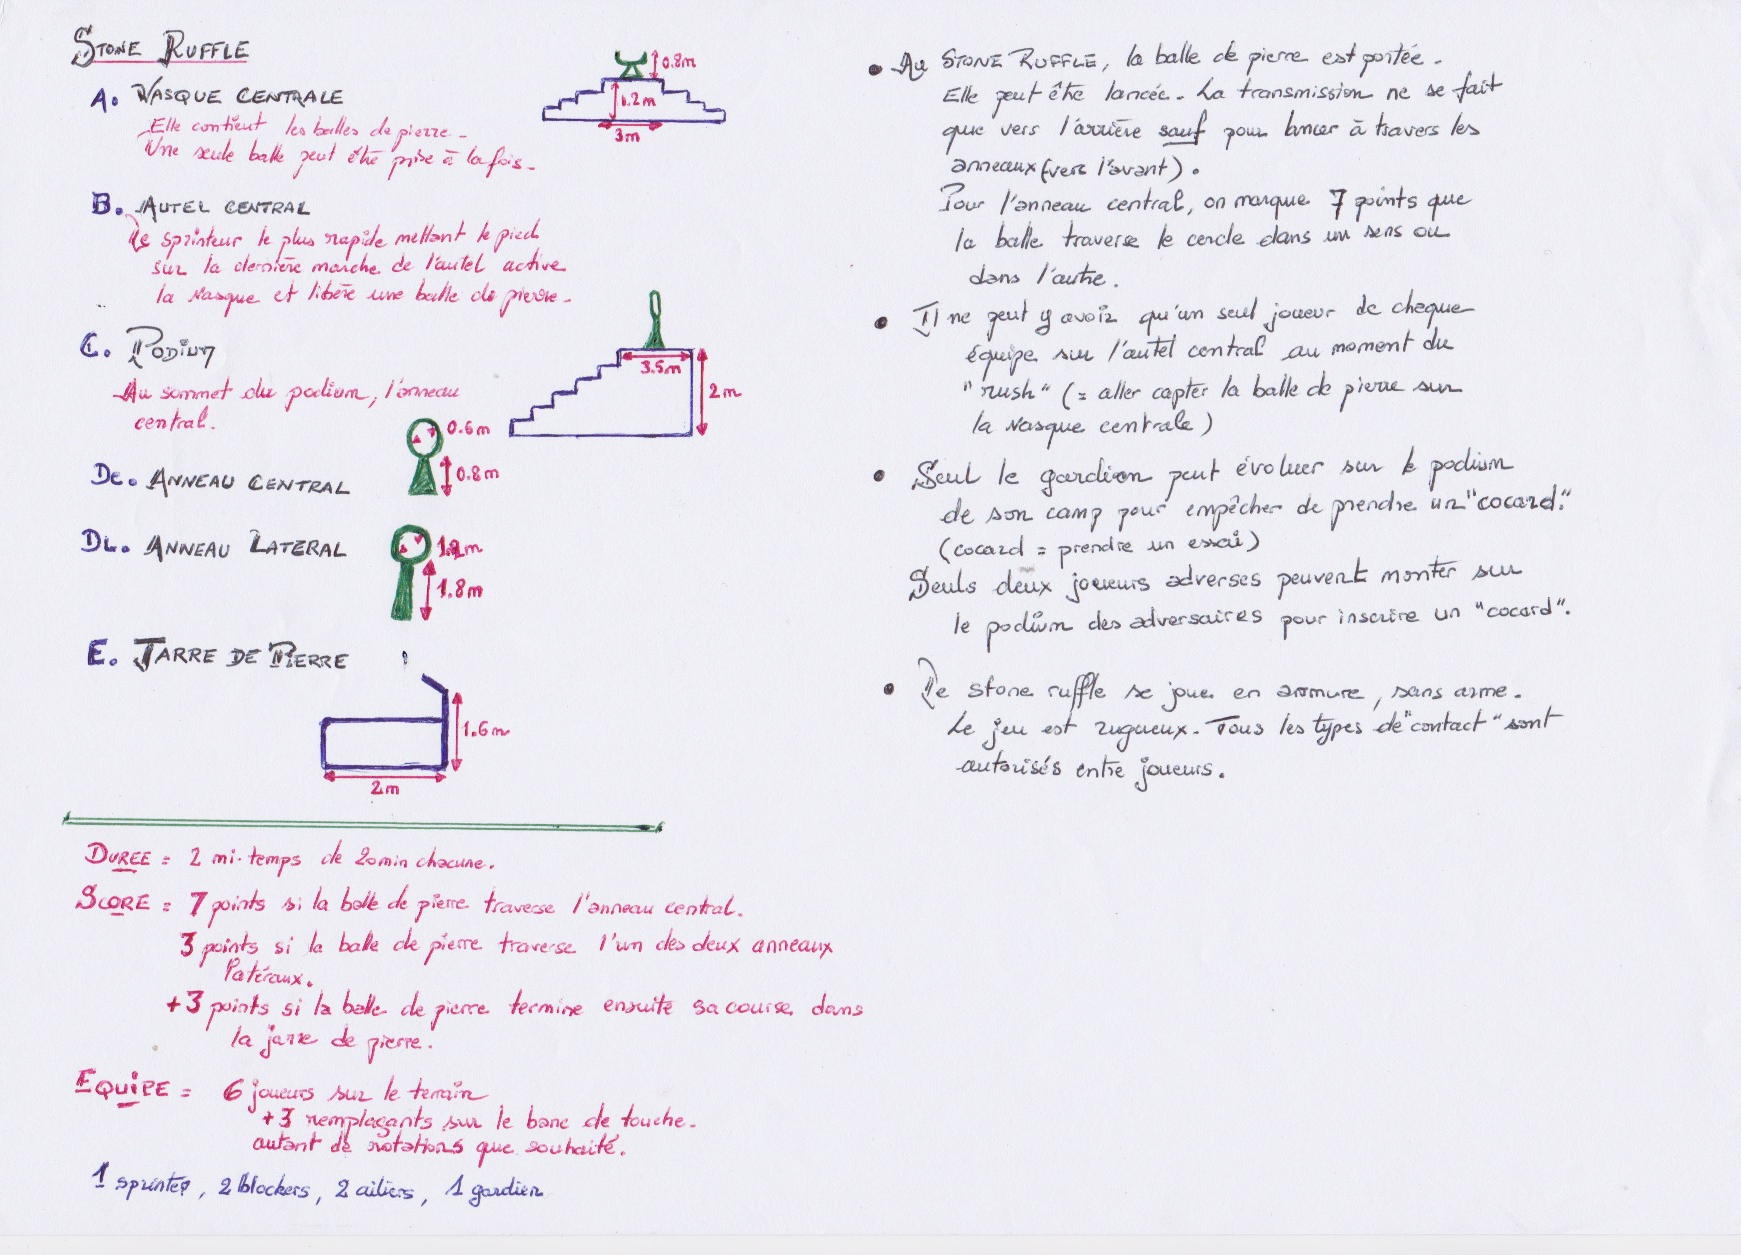 STONE RUFFLE
A. VASQUE CENTRALE
Elle contient les balles de pierre.
Une seule balle peut être prise à la fois.
0.8m
1.2m
3m
B. AUTEL CENTRAL
Le sprinteur le plus rapide mettant le pied
sur la dernière marche de l'autel active
la vasque et libère une balle de pierre.
C. PODIUM
Au sommet du podium, l'anneau
central.
3.5m
2m
DC. ANNEAU CENTRAL
0.6m
0.8m
DL. ANNEAU LATERAL
1.2m
1.8m
E. JARRE DE PIERRE
1.6m
2m
DUREE = 2 mi-temps de 20min chacune.
SCORE = 7 points si la balle de pierre traverse l'anneau central.
3 points si la balle de pierre traverse l'un des deux anneaux
latéraux.
+3 points si la balle de pierre termine ensuite sa course dans
la jarre de pierre.
EQUIPE = 6 joueurs sur le terrain
+3 remplaçants sur le banc de touche.
autant de rotations que souhaité.
1 sprinter, 2 blockers, 2 ailiers, 1 gardien
• Au STONE RUFFLE, la balle de pierre est portée.
Elle peut être lancée. La transmission ne se fait
que vers l'arrière sauf pour lancer à travers les
anneaux (vers l'avant).
Pour l'anneau central, on marque 7 points que
la balle traverse le cercle dans un sens ou
dans l'autre.
• Il ne peut y avoir qu'un seul joueur de chaque
équipe sur l'autel central au moment du
"rush" (= aller capter la balle de pierre sur
la vasque centrale)
• Seul le gardien peut évoluer sur le podium
de son camp pour empêcher de prendre un "cocard".
(cocard = prendre un essai)
Seuls deux joueurs adverses peuvent monter sur
le podium des adversaires pour inscrire un "cocard".
• Le stone ruffle se joue en armure, sans arme.
Le jeu est rugueux. Tous les types de "contact" sont
autorisés entre joueurs.